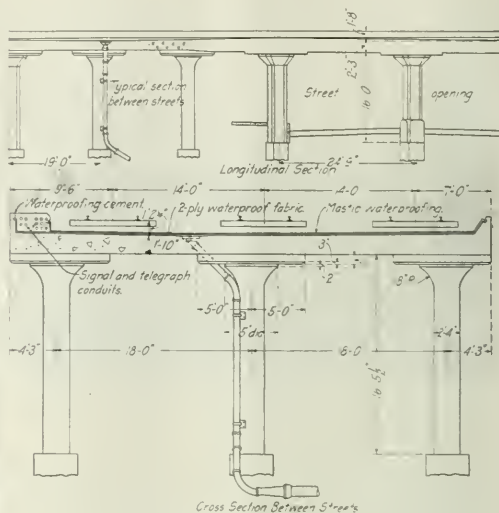 1'-8"
2'-3"
16'0
Typical section
between streets
Street
opening
19'-0"
24'-9"
Longitudinal Section
9'-6"
14'-0"
14-0
7'-0"
Waterproofing cement
2-ply waterproof fabric
Mastic waterproofing
1'-10"
3"
Signal and telegraph
conduits.
2"
5'-0"
5'-0"
5'dia
4'-3"
18'-0"
4'-3"
Cross Section Between Streets